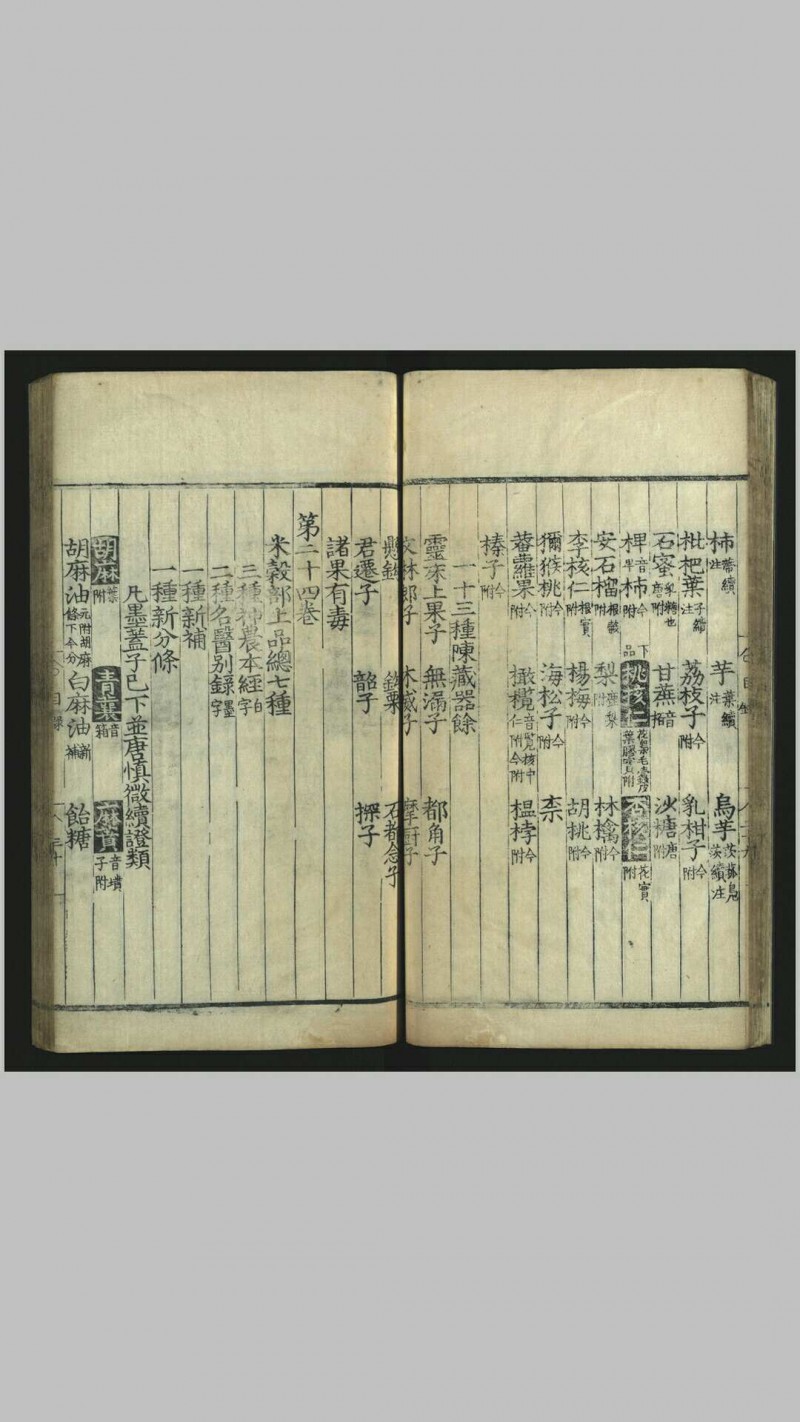 柿蔕續注 芋葉續注 烏芋茨菰鳧茨續注
枇杷葉子續注 荔枝子今附 乳柑子今附
石蜜乳糖也唐附 甘蔗音柘 沙糖唐附
椑音卑柿今附 下品 桃核仁 杏核仁花實附
安石榴根殼附 梨鹿梨附 林檎今附
李核仁根實附 楊梅今附 胡桃今附
獼猴桃今附 海松子今附 柰
菴羅果今附 橄欖音覽核中仁附今附 榲桲今附
榛子今附
一十三種陳藏器餘
靈床上果子 無漏子 都角子
文林郎子 木威子 摩厨子
懸鉤 鉤栗 石都念子
君遷子 韶子 探子
諸果有毒
第二十四卷
米穀部上品總七種
三種神農本經白字
二種名醫別錄墨字
一種新補
一種新分條
凡墨蓋子已下並唐慎微續證類
胡麻葉附 青蘘音箱 麻蕡音墳子附
胡麻油元附胡麻條下今分 白麻油新補 飴糖